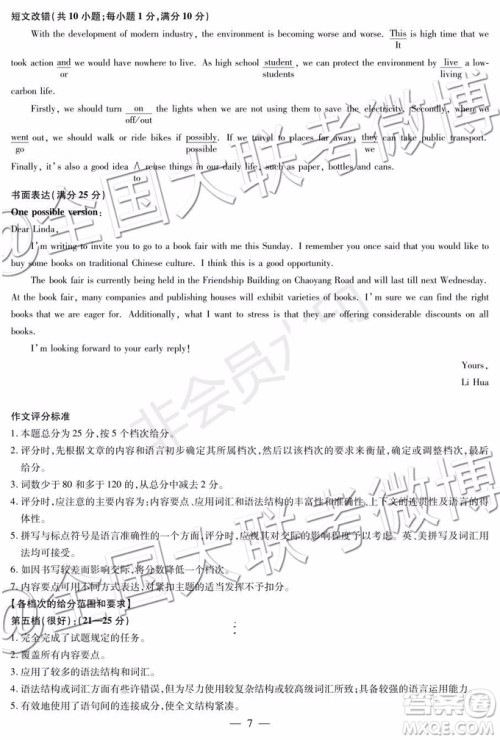 短文改错(共 10 小题;每小题 1 分,满分 10 分)
With the development of modern industry, the environment is becoming worse and worse. This is high time that we
It
took action and we would have nowhere to live. As high school student, we can protect the environment by live a low-
or students living
carbon life.
Firstly, we should turn on the lights when we are not using them to save the electricity. Secondly, whenever we
off/out
went out, we should walk or ride bikes if possibly. If we travel to places far away, they can take public transport.
go possible we
Finally, it's also a good idea ∧ reuse things in our daily life, such as paper, bottles and cans.
to
书面表达(满分 25 分)
One possible version:
Dear Linda,
I'm writing to invite you to go to a book fair with me this Sunday. I remember that you said you would like to
buy some books on traditional Chinese culture. I think this is a good opportunity.
The book fair is currently being held in the Friendship Building on Chaoyang Road and will last till next Wednesday.
At the book fair, many companies and publishing houses will exhibit varieties of books. I'm sure we can find the right
books that we are eager for. Additionally, what is so attractive is that they are offering considerable discounts on all
books.
I'm looking forward to your early reply!
Yours,
Li Hua
作文评分标准
1. 本题总分为 25 分,按 5 个档次给分。
2. 评分时,先根据文章的内容和语言初步确定其所属档次,然后以该档次的要求来衡量,确定或调整档次,最后
给分。
3. 词数少于 80 和多于 120 的,从总分中减去 2 分。
4. 评分时,应注意的主要内容为:内容要点、应用词汇和语法结构的丰富性和准确性、上下文的连贯性及语言的得
体性。
5. 拼写与标点符号是语言准确性的一个方面,评分时,应视其对交际的影响程度予以考虑。英、美拼写及词汇用
法均可接受。
6. 如因书写较差而影响交际,将分数降低一个档次。
7. 内容要点可用不同方式表达,对紧扣主题的适当发挥不予扣分。
【各档次的给分范围和要求】
第五档(很好):(21—25 分)
1. 完全完成了试题规定的任务。
2. 覆盖所有内容要点。
3. 应用了较多的语法结构和词汇。
4. 语法结构或词汇方面有些许错误,但为尽力使用较复杂结构或较高级词汇所致;具备较强的语言运用能力。
5. 有效地使用了语句间的连接成分,使全文结构紧凑。
— 7 —
@全国大联考微博
@全国大联考微博
非会员水印
答案圈